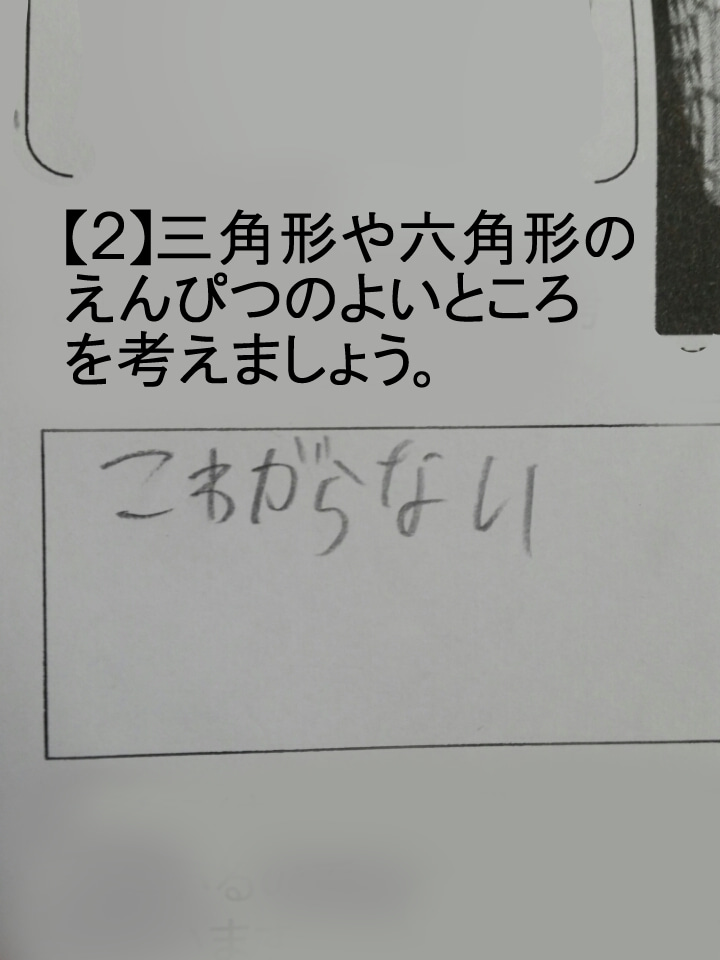 【2】三角形や六角形の
えんぴつのよいところ
を考えましょう。
こわがらない